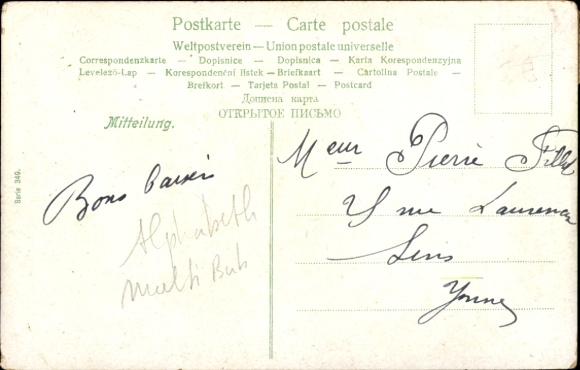 Postkarte — Carte postale
Weltpostverein — Union postale universelle
Correspondenzkarte — Dopisnice — Dopisnica — Karta Korespondenzyjna
Levelező-Lap — Korespondenční listek — Briefkaart — Cartolina Postale —
Brefkort — Tarjeta Postal — Postcard
Дописна карта
ОТКРЫТОЕ ПИСЬМО
Mitteilung.
Serie 349.
Bons baisers
Alphabeth
Multi Bab
Meur Pierre
rue Laurencin
Sens
Yonne